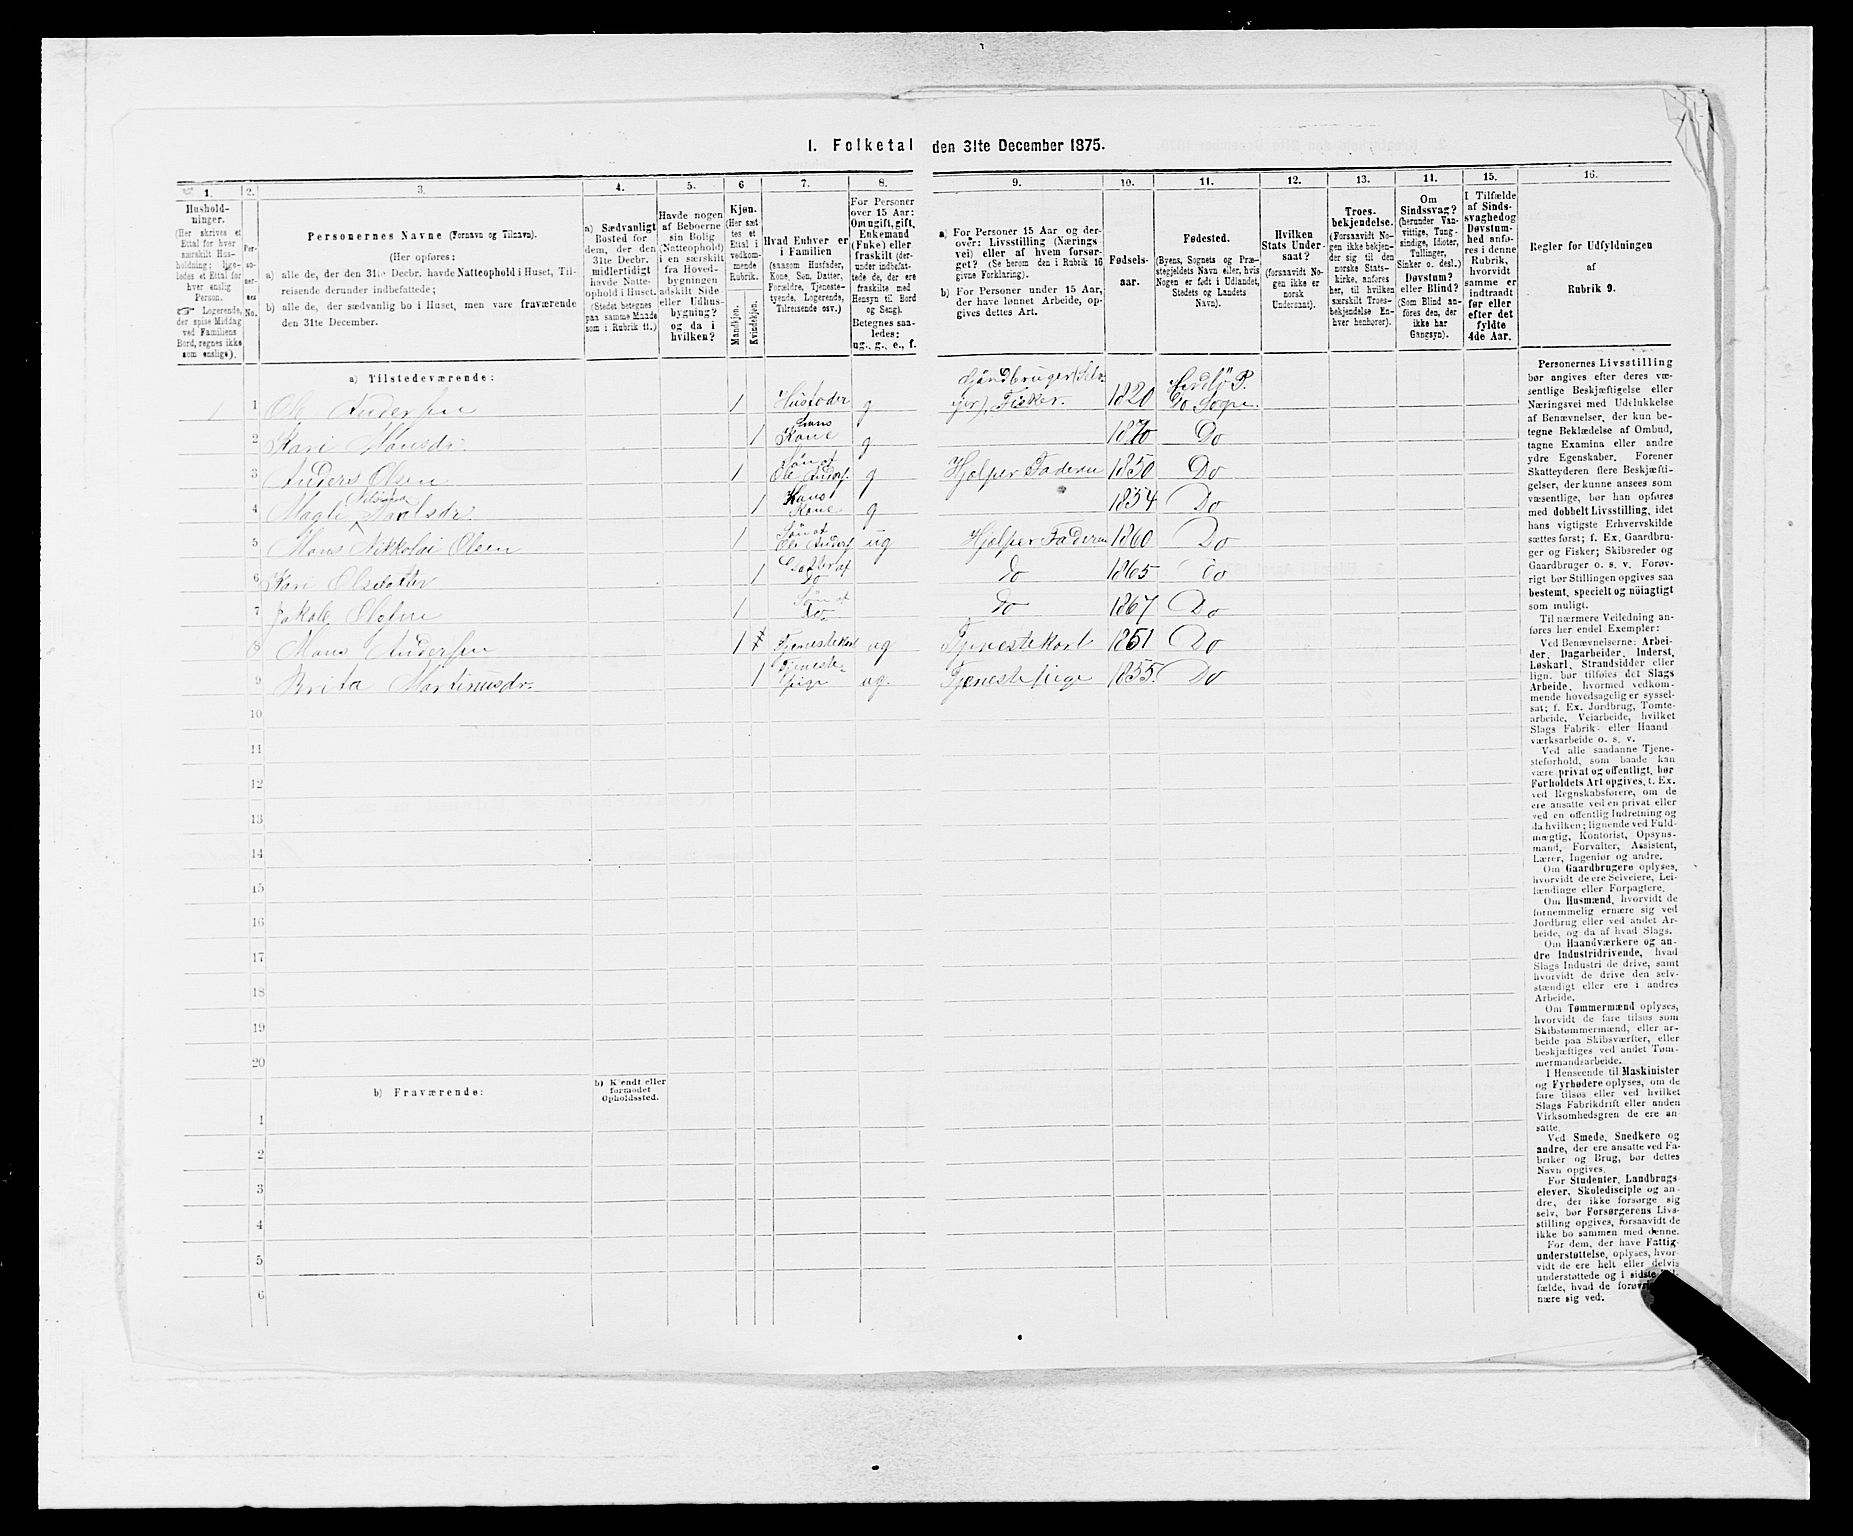 I. Folketal den 31te December 1875.
1. 2. 3. 4. 5. 6 7. 8. 9. 10. 11. 12. 13. 14. 15. 16.
Hushold-
ninger.
(Her skrives et
Ettal for hver
særskilt Hus-
holdning; lige-
ledes et Ettal for
hver enslig
Person.
☞ Logerende,
der spise Middag
ved Familiens
Bord, regnes ikke
som enslige).
Per-
so-
ner-
nes
No.
Personernes Navne (Fornavn og Tilnavn).
(Her opføres:
a) alle de, der den 31te Decbr. havde Natteophold i Huset, Til-
reisende derunder indbefattede;
b) alle de, der sædvanlig bo i Huset, men vare fraværende
den 31te December.
a) Sædvanligt
Bosted for
dem, der den
31te Decbr.
midlertidigt
havde Natte-
ophold i Huset.
(Stedet betegnes
paa samme Maade
som i Rubrik 11.)
Havde nogen
af Beboerne
sin Bolig
(Natteophold)
i en særskilt
fra Hoved-
bygningen
adskilt Side
eller Udhus-
bygning?
og da i
hvilken?
Kjøn.
(Her sæt
tes et
Ettal i
vedkom-
mende
Rubrik.
Mandkjøn.
Kvindekjøn.
Hvad Enhver er
i Familien
(saasom Husfader,
Kone, Søn, Datter,
Forældre, Tjeneste-
tyende, Logerende,
Tilreisende osv.)
For Personer
over 15 Aar:
Om ugift, gift,
Enkemand
(Enke) eller
fraskilt (der-
under indbefat-
tede de, der ere
fraskilte med
Hensyn til Bord
og Seng).
Betegnes saa-
ledes:
ug., g., e., f.
a) For Personer 15 Aar og der-
over: Livsstilling (Nærings
vei) eller af hvem forsør-
get? (Se herom den i Rubrik 16
givne Forklaring).
b) For Personer under 15 Aar,
der have lønnet Arbeide, op-
gives dettes Art.
Fødsels-
aar.
Fødested.
(Byens, Sognets og Præ-
stegjeldets Navn eller, hvis
Nogen er født i Udlandet,
Stedets og Landets
Navn).
Hvilken
Stats Under-
saat?
(forsaavidt No-
gen ikke er
norsk
Undersaat).
Troes-
bekjendelse.
(Forsaavidt No-
gen ikke bekjen-
der sig til den
norske Stats-
kirke, anføres
her, til hvilken
særskilt Troes-
bekjendelse En-
hver henhører).
Om
Sindssvag?
(herunder Van-
vittige, Tung-
sindige, Idioter,
Tullinger,
Sinker o. desl.)
Døvstum?
eller Blind?
(Som Blind an-
føres den, der
ikke har
Gangsyn).
I Tilfælde
af Sinds-
svaghed og
Døvstum-
hed anfø-
res i denne
Rubrik,
hvorvidt
samme er
indtraadt
før eller
efter det
fyldte
4de Aar.
Regler for Udfyldningen
af
Rubrik 9.
a) Tilstedeværende:
1 1 Ole Andersen 1 Husfader g Fisker. 1820 Do Sogn.
2 Kari Monsdr. 1 hans Kone g 1820 Do
3 Anders Olsen 1 Søn af Ole Anders. g Hjelper Faderen 1850 Do
4 Magli 1 Hans Kone g 1854 Do
5 Mons Nikkolai Olsen 1 Søn af Ole Anders ug Hjelper Faderen 1860 Do
6 Kari Olsdatter 1 Datter af Do do 1865 Do
7 Jakob Olsen 1 Søn af Do do 1867 Do
8 Mons Andersen 1 Tjenestekarl ug Tjenestekarl 1851 Do
9 Brita Martinusdr. 1 Tjeneste-pige ug. Tjenestepige 1855. Do
10
11
12
13
14
15
16
17
18
19
20
b) Fraværende:
b) Kjendt eller
formodet
Opholdssted.
1
2
3
4
5
6
Personernes Livsstilling
bør angives efter deres væ-
sentlige Beskjæftigelse eller
Næringsvei med Udelukkelse
af Benævnelser, der kun be-
tegne Beklædelse af Ombud,
tagne Examina eller andre
ydre Egenskaber. Forener
Skatteyderen flere Beskjæfti-
gelser, der kunne ansees som
væsentlige, bør han opføres
med dobbelt Livsstilling, idet
hans vigtigste Erhvervskilde
sættes først; f. Ex. Gaardbru-
ger og Fisker; Skibsreder og
Gaardbruger o. s. v. Forøv-
rigt bør Stillingen opgives saa
bestemt, specielt og nøiagtigt
som muligt.
Til nærmere Veiledning an-
føres her endel Exempler:
Ved Benævnelserne: Arbei-
der, Dagarbeider, Inderst,
Løskarl, Strandsidder eller
lign. bør tilføies det Slags
Arbeide, hvormed vedkom-
mende hovedsagelig er syssel-
sat; f. Ex. Jordbrug, Tomte-
arbeide, Veiarbeide, hvilket
Slags Fabrik- eller Haand
værksarbeide o. s. v.
Ved alle saadanne Tjene-
steforhold, som baade kan
være privat og offentligt, bør
Forholdets Art opgives, t. Ex.
ved Regnskabsførere, om de
ere ansatte ved en privat eller
ved en offentlig Indretning og
da hvilken; lignende ved Fuld-
mægtig, Kontorist, Opsyns-
mand, Forvalter, Assistent,
Lærer, Ingeniør og andre.
Om Gaardbrugere oplyses,
hvorvidt de ere Selveiere, Lei-
lændinge eller Forpagtere.
Om Husmænd, hvorvidt de
fornemmelig ernære sig ved
Jordbrug eller ved andet Ar-
beide, og da af hvad Slags.
Om Haandværkere og an-
dre Industridrivende, hvad
Slags Industri de drive, samt
hvorvidt de drive den selv-
stændigt eller ere i andres
Arbeide.
Om Tømmermænd oplyses,
hvorvidt de fare tilsøs som
Skibstømmermænd, eller ar-
beide paa Skibsværfter, eller
beskjæftiges ved andet Tøm-
mermandsarbeide.
I Henseende til Maskinister
og Fyrbødere oplyses, om de
fare tilsøs eller ved hvilket
Slags Fabrikdrift eller anden
Virksomhedsgren de ere an-
satte.
Ved Smede, Snedkere og
andre, der ere ansatte ved Fa-
briker og Brug, bør dettes
Navn opgives.
For Studenter, Landbrugs-
elever, Skoledisciple og an-
dre, der ikke forsørge sig
selv, bør Forsørgerens Livs-
stilling opgives, forsaavidt de
ikke bo sammen med denne.
For dem, der have Fattig-
understøttelse, oplyses, hvor-
vidt de ere helt eller delvis
understøttede og i sidste
fælde, hvad de
nære sig ved.